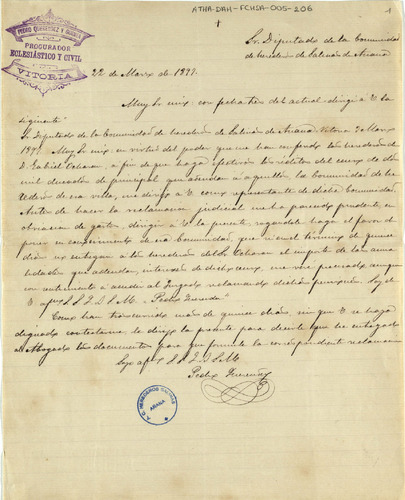 ATHA-DAH-FCHSA-005-206
1
PEDRO GUEREÑEZ Y
PROCURADOR
ECLESIÁSTICO Y CIVIL
VITORIA
Sr. Diputado de la Comunidad
de herederos de Salinas de Añana
22 de Marzo de 1897.
Muy Sr. mio: con fecha tres del actual dirigi á V. la
siguiente:
"Sr. Diputado de la Comunidad de herederos de Salinas de Añana. Vitoria 3 Marzo
1897. Muy Sr. mio: en virtud del poder que me han conferido los herederos
D. Gabriel Ochoran, a fin de que haga efectivos los réditos del censo de dos
mil ducados de principal que adeudan á aquellos la Comunidad de he
rederos de esa villa, me dirijo á V. como representante de dicha Comunidad.
Antes de hacer la reclamacion judicial me ha parecido prudente, en
obviacion de gastos, dirigir á V. la presente, rogandole haga el favor de
poner en conocimiento de esa Comunidad, que si en el término de quince
dias no entregan á los herederos del Sr. Ochoran el importe de las anua
lidades que adeudan, intereses de dicho censo, me veré precisado aunque
con sentimiento a acudir al Juzgado reclamando dicha pension. Soy de
V. afmo. S. S. Q. B. S. M. = Pedro
Como han transcurrido mas de quince dias, sin que V. se haya
dignado contestarme, le dirijo la presente para decirle que he entregado
al Abogado los documentos para que formule la correspondiente reclamacion
Suyo afmo. S. S. Q. B. S. M.
Pedro
A.C. HEREDEROS SALINAS
AÑANA